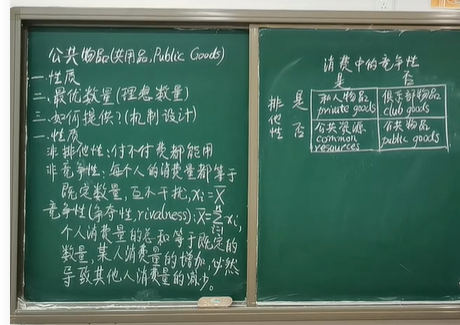 公共物品(共用品,Public Goods)
一.性质
二.最优数量(理想数量)
三.如何提供?(机制设计)
一.性质
非排他性:付不付费都能用
非竞争性:每个人的消费量都等于
既定数量,互不干扰,xᵢ=X̄
竞争性(争夺性,rivalness):X̄=∑xᵢ,
个人消费量的总和等于既定的
数量,某人消费量的增加,必然
导致其他人消费量的减少。
消费中的竞争性
是 否
排他性
是 私人物品 private goods 俱乐部物品 club goods
否 公共资源 common resources 公共物品 public goods